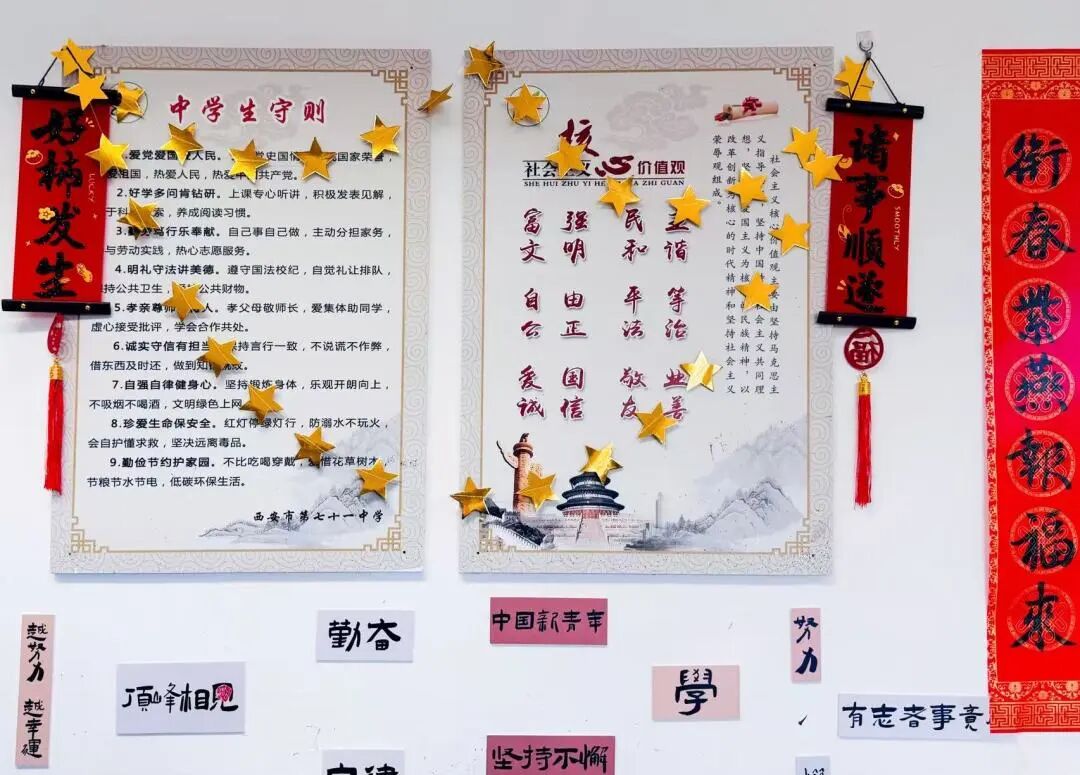 好柿发生
LUCKY
中学生守则
1.爱党爱国爱人民。 党史国情 国家荣誉,
祖国,热爱人民,热爱中国共产党。
2.好学多问肯钻研。上课专心听讲,积极发表见解,
于科 索,养成阅读习惯。
3.勤劳笃行乐奉献。自己事自己做,主动分担家务,
与劳动实践,热心志愿服务。
4.明礼守法讲美德。遵守国法校纪,自觉礼让排队,
持公共卫生, 公共财物。
5.孝亲尊师 人。孝父母敬师长,爱集体助同学,
虚心接受批评,学会合作共处。
6.诚实守信有担当。 持言行一致,不说谎不作弊,
借东西及时还,做到知 改。
7.自强自律健身心。坚持锻炼身体,乐观开朗向上,
不吸烟不喝酒,文明绿色上网。
8.珍爱生命保安全。红灯停绿灯行,防溺水不玩火,
会自护懂求救,坚决远离毒品。
9.勤俭节约护家园。不比吃喝穿戴, 惜花草树木,
节粮节水节电,低碳环保生活。
西安市第七十一中学
核心
社会 义 价值观
SHE HUI ZHU YI HE JIA ZHI GUAN
富强 民主
文明 和谐
自由 平等
公正 法治
爱国 敬业
诚信 友善
社会主义核心价值观主要由坚持马克思主
义指导 坚持中国 社会主义共同理
想,坚 爱国主义为核 的民族精神,以
改革创新为核心的时代精神和坚持社会主义
荣辱观组成。
诸事顺遂
SMOOTHLY
福
衔春紫燕报福来
越努力 越幸運
頂峰相見
勤奋
中国新青年
學
努力
有志者事竟
坚持不懈